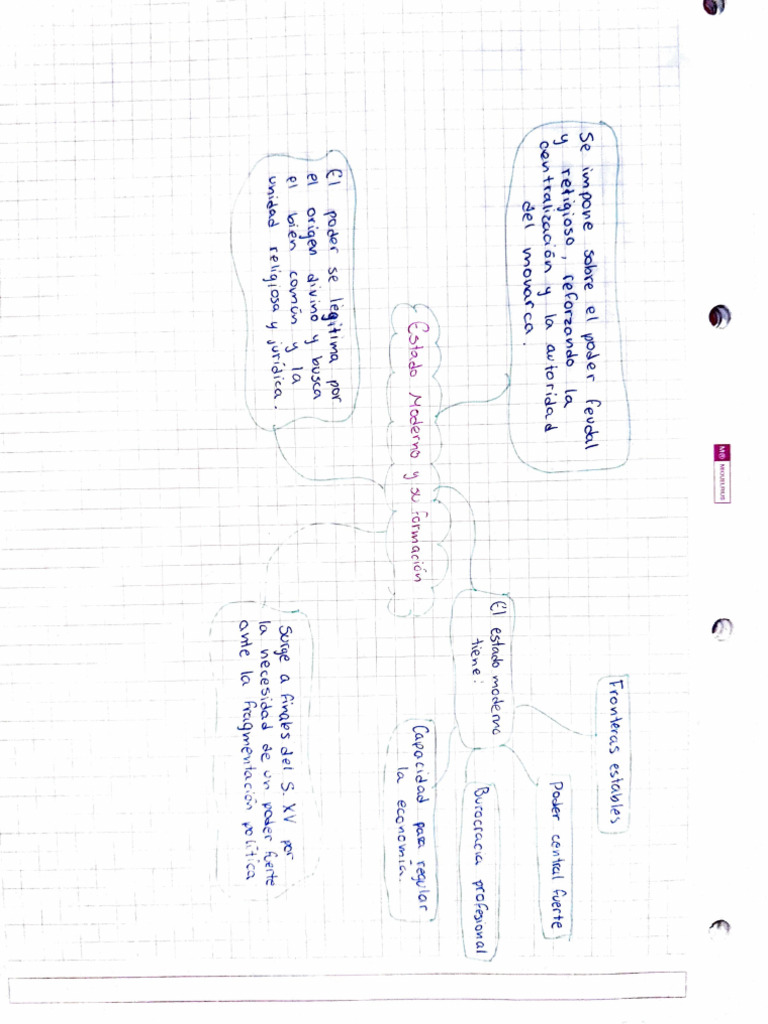 Se impone sobre el poder feudal
y religioso, reforzando la
centralización y la autoridad
del monarca.
Estado Moderno y su formación
El poder se legitima por
el origen divino y busca
el bien común y la
unidad religiosa y jurídica.
El estado moderno
tiene:
Fronteras estables
Poder central fuerte
Burocracia profesional
Capacidad para regular
la economía.
Surge a finales del S. XV por
la necesidad de un poder fuerte
ante la fragmentación política
MIQUELRIUS